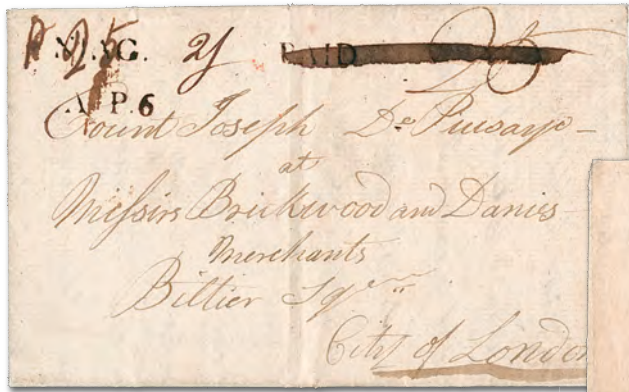 NIAG. 25 PAID 25
A P.6
Count Joseph De Puisaye
at
Messirs Brickwood and Danies
Merchants
Billier Sqer
City of London